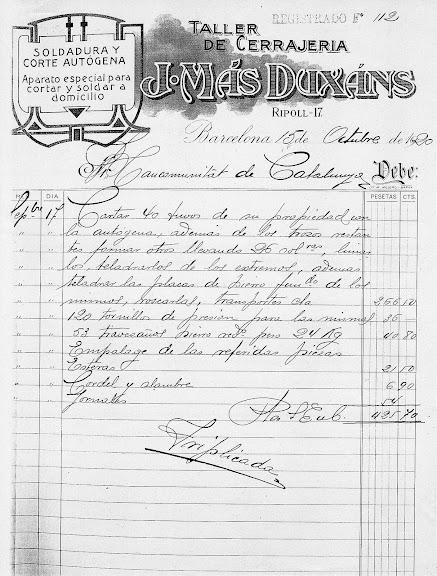 TALLER
DE CERRAJERIA
REGISTRADO Fº 112
SOLDADURA Y
CORTE AUTÓGENA
Aparato especial para
cortar y soldar a
domicilio
J. MÁS DUXÁNS
RIPOLL-17
Barcelona 15 de Octubre de 1920
Mancomunitat de Catalunya Debe:
DIA PESETAS CTS.
17 Cortar 40 tuvos de su propiedad con
la autógena, ademas de los trozos restan
tes formar otros llevando 26 sol
los, taladrarlos de los extremos, ademas
taladrar las placas de hierro
mismos, roscarlos, transportes &a 256 10
120 tornillos de presión para las mismas 36
53 travesaños hierro redº peso 24 Kg 40 80
Empalage de las referidas piezas
Esteras 21 50
Cordel y alambre 6 90
Jornales 54
425 70
Triplicada